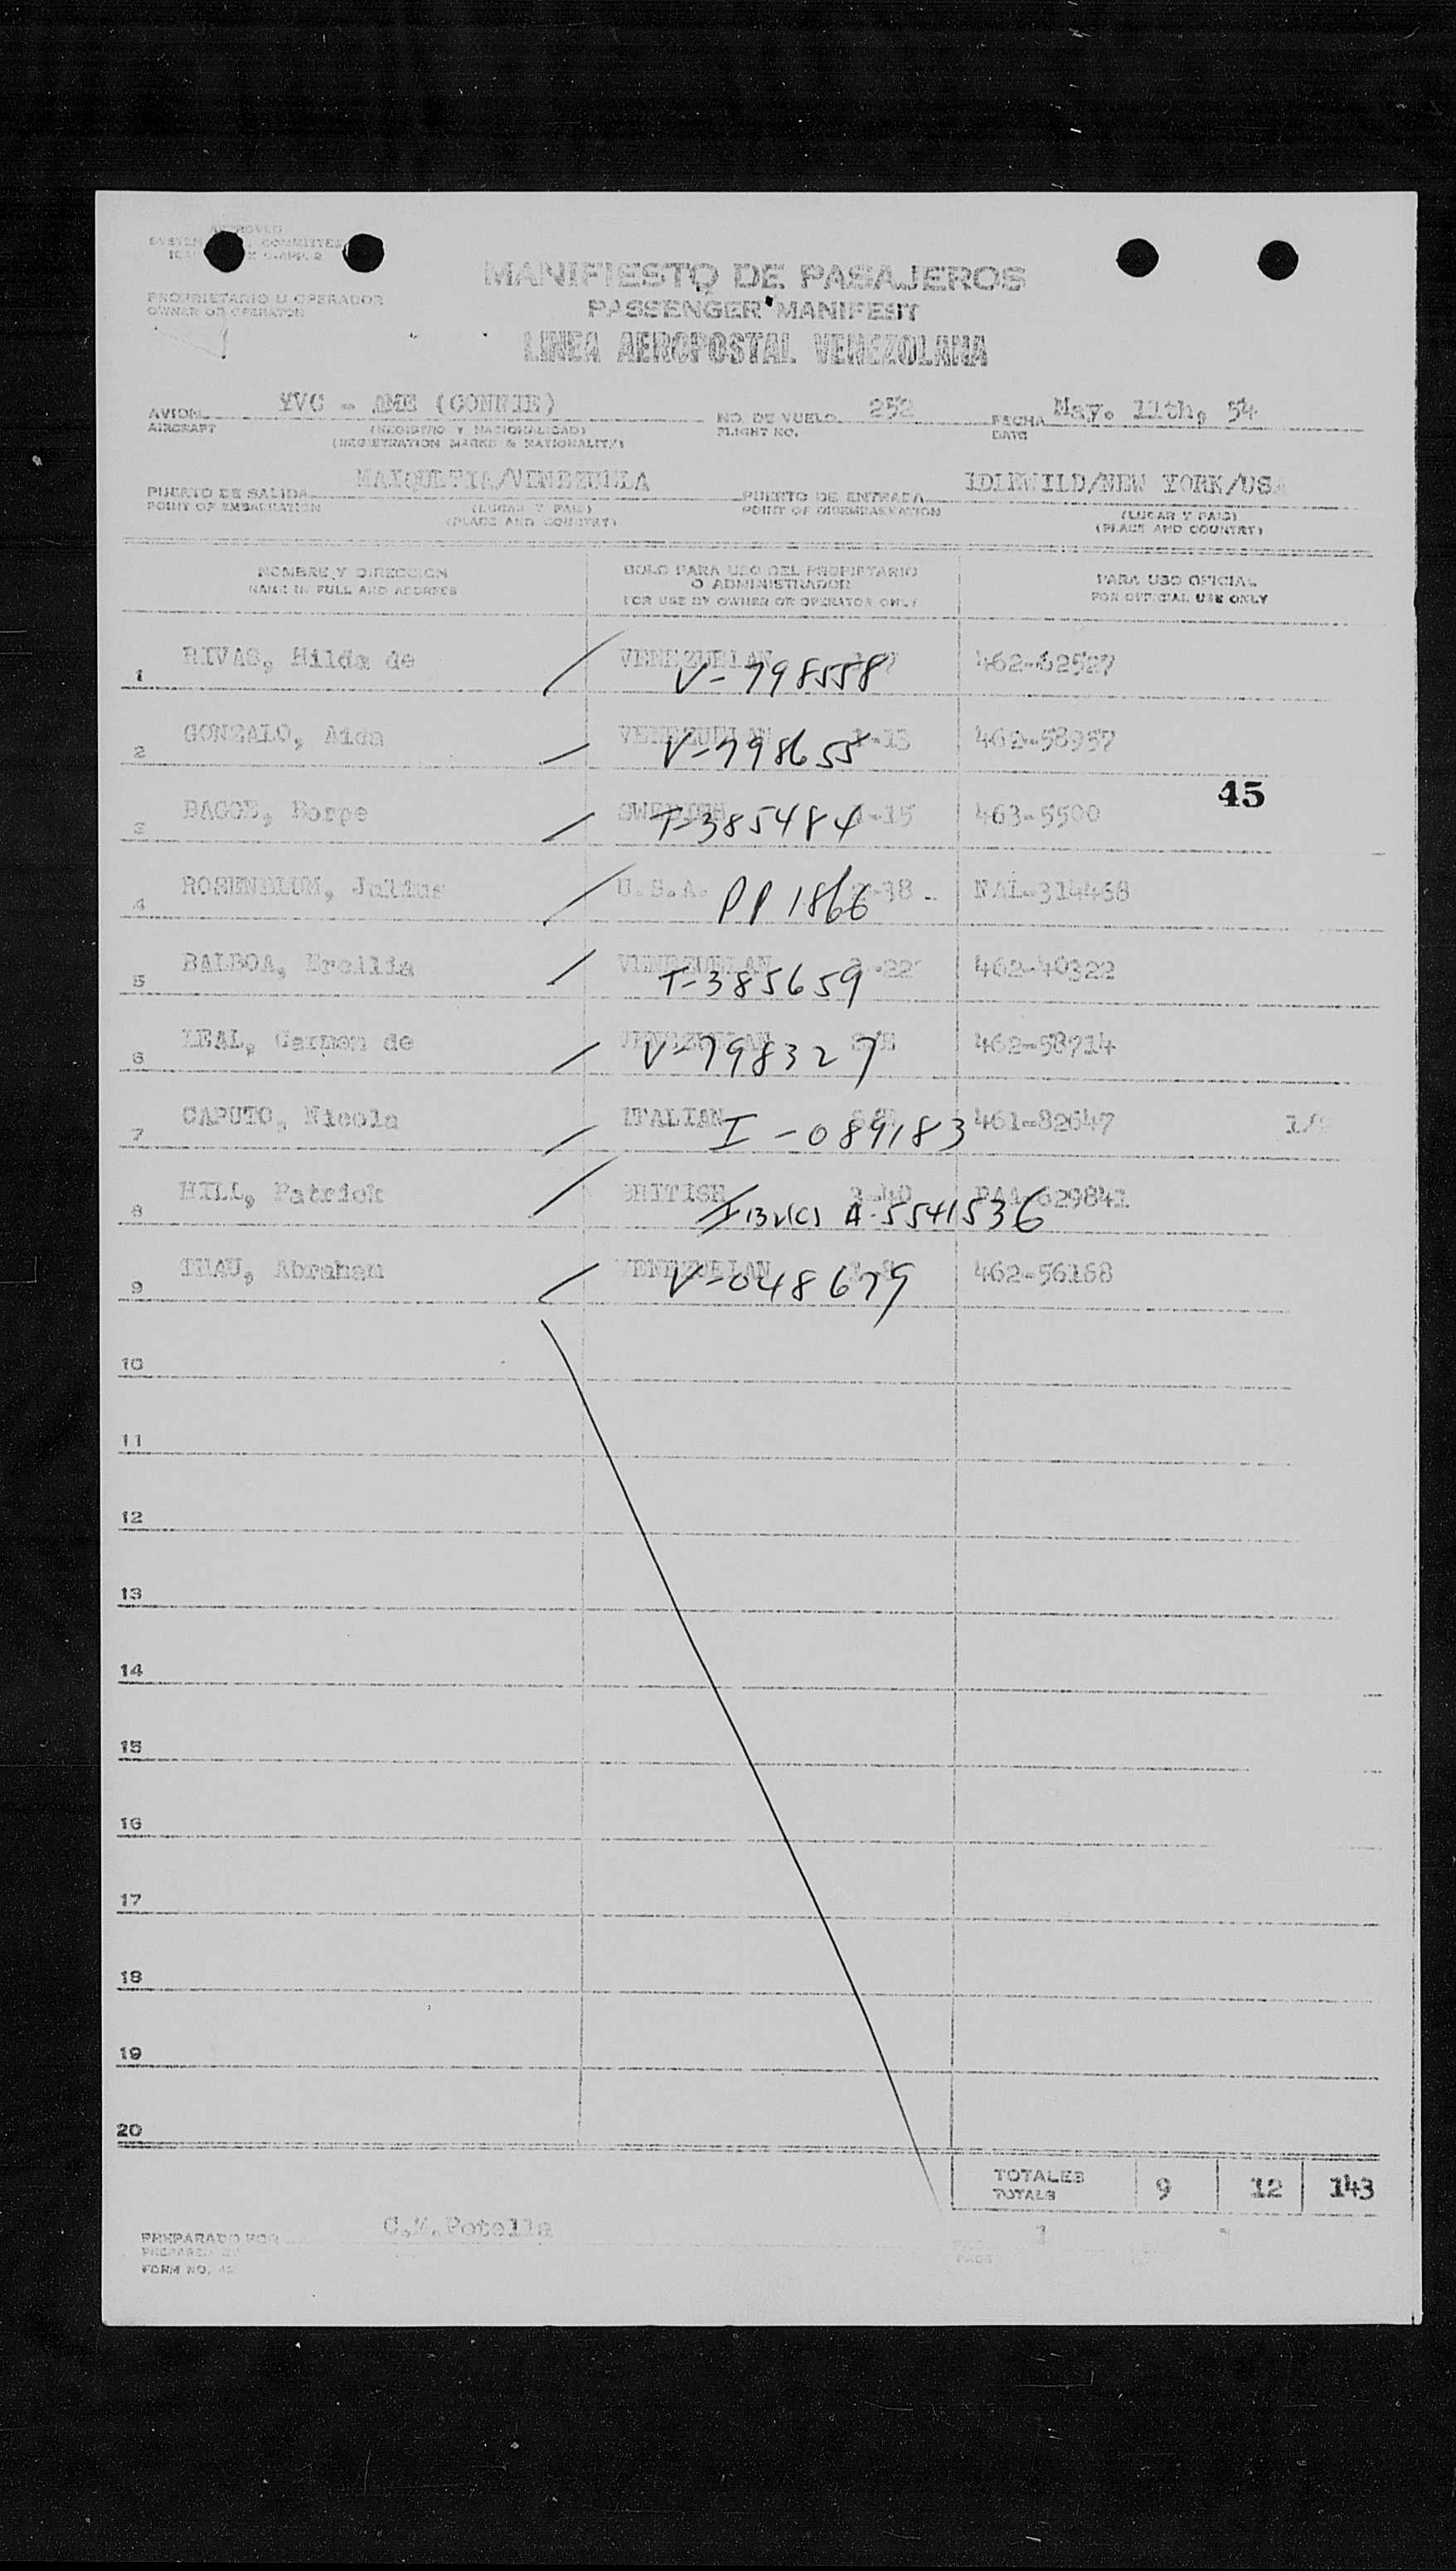 APPROVED
COMMITTEE
PROPRIETARIO U OPERADOR
OWNER OR OPERATOR
MANIFIESTO DE PASAJEROS
PASSENGER MANIFEST
LINEA AEROPOSTAL VENEZOLANA
AVION YVC - AME (CONNIE) NO. DE VUELO 252 FECHA May. 11th, 54
AIRCRAFT (REGISTRO Y NACIONALIDAD) FLIGHT NO. DATE
(REGISTRATION MARKS & NATIONALITY)
PUERTO DE SALIDA MAIQUETIA/VENEZUELA PUERTO DE ENTRADA IDLEWILD/NEW YORK/USA
POINT OF EMBARKATION (LUGAR Y PAIS) POINT OF DISEMBARKATION (LUGAR Y PAIS)
(PLACE AND COUNTRY) (PLACE AND COUNTRY)
NOMBRE Y DIRECCION SOLO PARA USO DEL PROPIETARIO PARA USO OFICIAL
NAME IN FULL AND ADDRESS O ADMINISTRADOR FOR OFFICIAL USE ONLY
FOR USE BY OWNER OR OPERATOR ONLY
1 RIVAS, Hilda de VENEZUELAN V-798558 462-62527
2 GONZALO, Aida VENEZUELAN 1-13 V-798655 462-58957
45
3 BAGGE, Borge SWEDISH -15 T-385484 463-5500
4 ROSENBLUM, Julius U.S.A. -38 PP 1866 NAL-314468
5 BALBOA, Ercilia VENEZUELAN -22 T-385659 462-40322
6 LEAL, Carmen de VENEZUELAN V-798327 462-58714
7 CAPUTO, Nicola ITALIAN I-089183 461-82647 1/
8 HILL, Patrick BRITISH 2-40 A-5541536 PAA-629841
9 THAU, Abraham VENEZUELAN V-048679 462-56168
10
11
12
13
14
15
16
17
18
19
20
TOTALES 9 12 143
TOTALS
PREPARADO POR C.M.Potella 1
PREPARED BY PAGE
FORM NO.